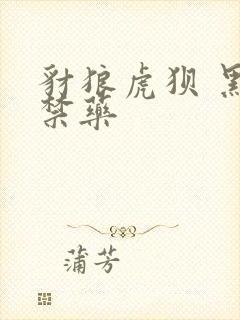 豺狼虎狈 黑
禁药
蒲芳